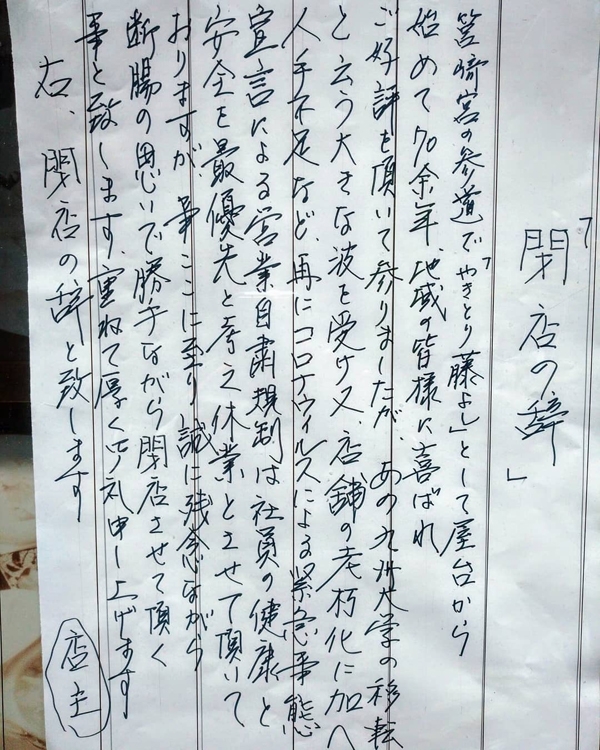 「閉店の辞」
筥崎宮の参道で「やきとり藤よし」として屋台から
始めて70余年、地域の皆様に喜ばれ
ご好評を頂いて参りましたが、あの九州大学の移転
と云う大きな波を受け又、店舗の老朽化に加へ
人手不足など、再にコロナウィルスによる緊急事態
宣言による営業自粛規制は社員の健康と
安全を最優先と考え休業とさせて頂いて
おりますが、事ここに至り誠に残念ながら
断腸の思いで勝手ながら閉店させて頂く
事と致します、重ねて厚く御礼申し上げます
右、閉店の辞と致します
店主